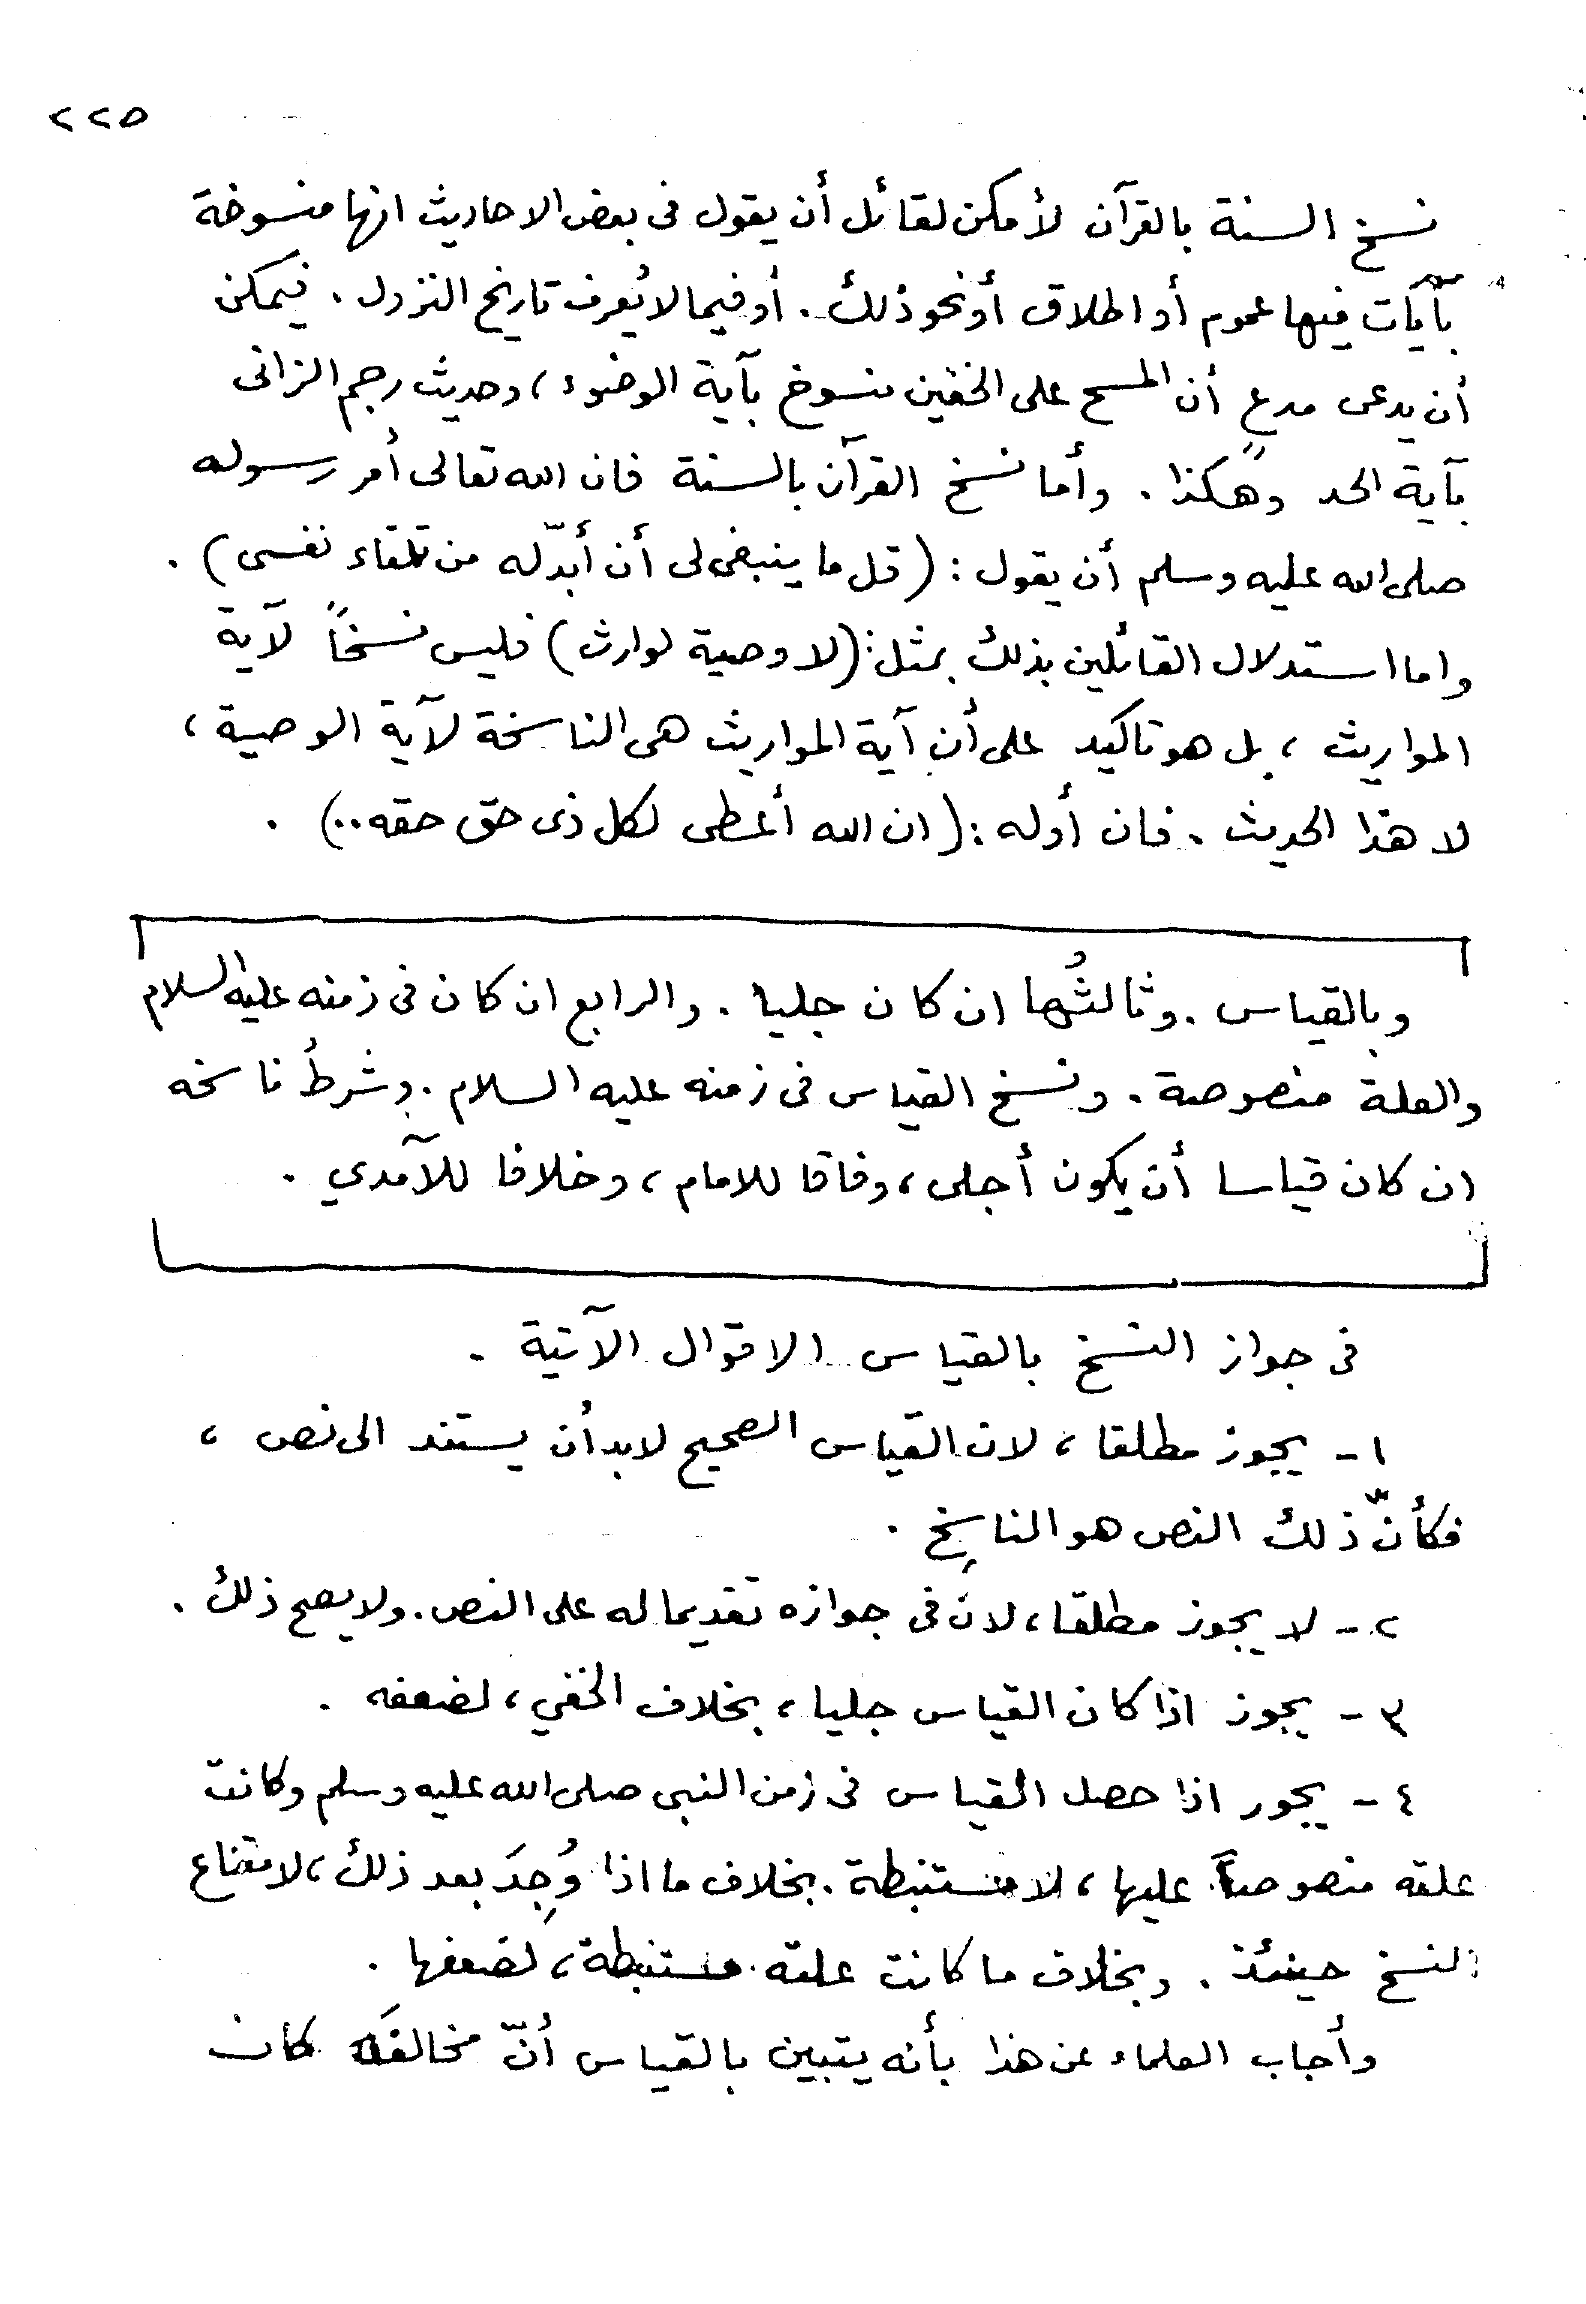 ٢٢٥
نسخ السنة بالقرآن لأمكن لقائل أن يقول فى بعض الاحاديث انها منسوخة
بآيات فيها عموم أو اطلاق أو نحو ذلك . أو فيما لا يُعرف تاريخ النزول . فيمكن
أن يدعى مدع أن المسح على الخفين منسوخ بآية الوضوء ، وحديث رجم الزانى
بآية الحد وهكذا . وأما نسخ القرآن بالسنة فان الله تعالى أمر رسوله
صلى الله عليه وسلم أن يقول : (قل ما ينبغى لى أن أبدّله من تلقاء نفسى) .
واما استدلال القائلين بذلك بمثل : (لا وصية لوارث) فليس نسخاً لآية
المواريث ، بل هو تاكيد على أن آية المواريث هى الناسخة لآية الوصية ،
لا هذا الحديث . فان أوله : (ان الله أعطى لكل ذى حق حقه ..) .
وبالقياس . وثالثُها ان كان جليا . والرابع ان كان فى زمنه عليه السلام
والعلة منصوصة . ونسخ القياس فى زمنه عليه السلام . وشرطُ ناسخه
ان كان قياسا أن يكون أجلى ، وفاقا للامام ، وخلافا للآمدي .
فى جواز النسخ بالقياس الاقوال الآتية .
١ - يجوز مطلقا ، لان القياس الصحيح لابد أن يستند الى نص ،
فكأنّ ذلك النص هو الناسِخ .
٢ - لا يجوز مطلقا ، لان فى جوازه تقديما له على النص . ولا يصح ذلك .
٣ - يجوز اذا كان القياس جليا ، بخلاف الخفي ، لضعفه .
٤ - يجور اذا حصل القياس فى زمن النبى صلى الله عليه وسلم وكانت
علته منصوصاً عليها ، لا مستنبطة . بخلاف ما اذا وُجِدَ بعد ذلك ، لامتناع
النسخ حينئذ . وبخلاف ما كانت علته مستنبطة ، لضعفها .
وأجاب العلماء عن هذا بأنه يتبين بالقياس أنّ مخالفَه كان